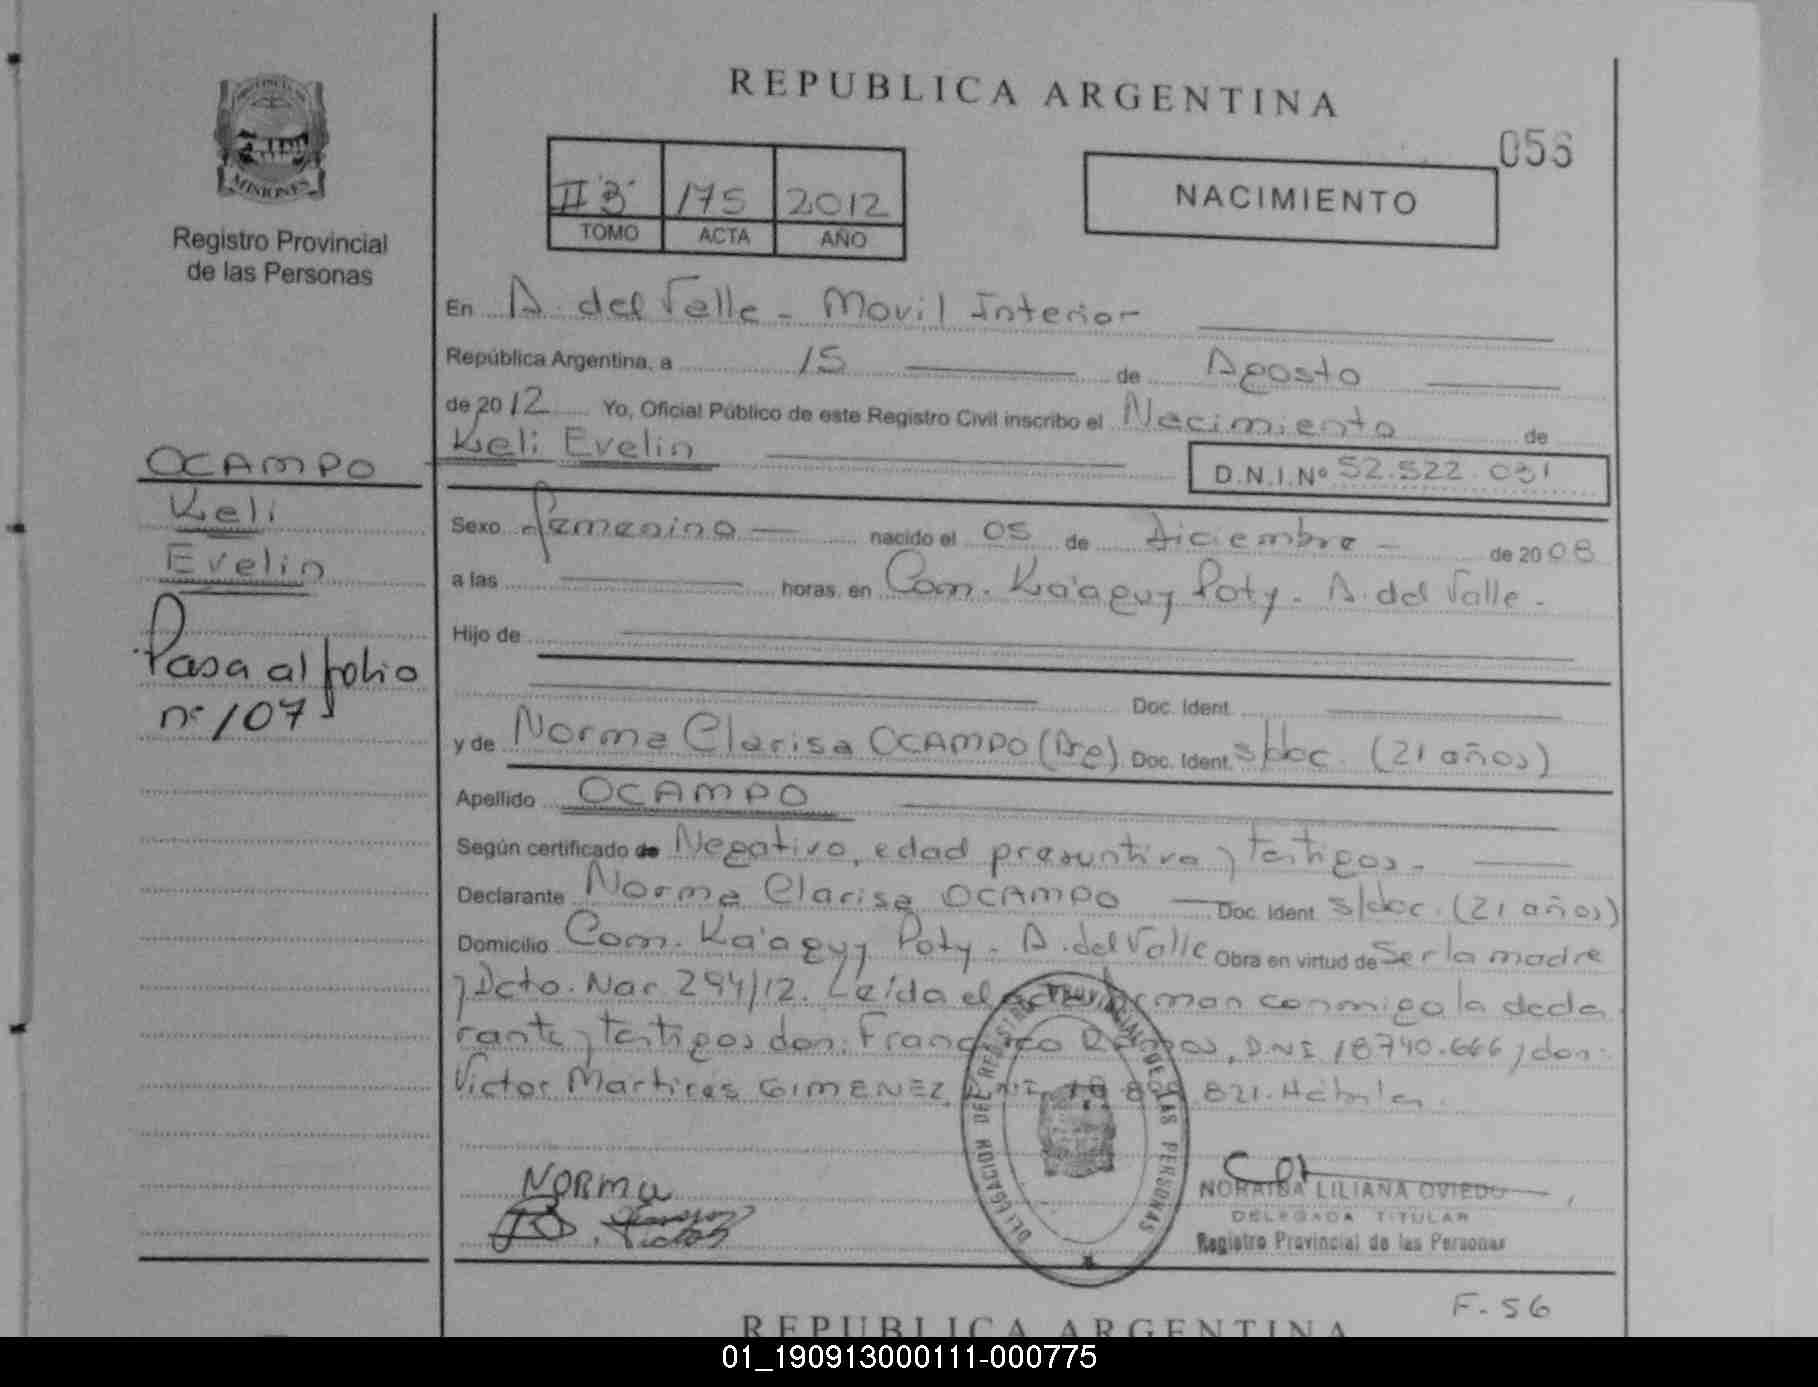 REPUBLICA ARGENTINA
056
PROVINCIA
MISIONES
Registro Provincial
de las Personas
II "B" 175 2012
TOMO ACTA AÑO
NACIMIENTO
En A. del Valle - Movil Interior
República Argentina, a 15 de Agosto
de 2012 Yo, Oficial Público de este Registro Civil inscribo el Nacimiento de
Keli Evelin D.N.I. Nº 52.522.031
OCAMPO
Keli
Evelin
Pasa al folio
nº 107
Sexo femenino nacido el 05 de diciembre - de 2008
a las horas, en Com. Ka'aguy Poty - A. del Valle -
Hijo de
Doc. Ident.
y de Norma Clarisa OCAMPO (Arg). Doc. Ident. s/doc. (21 años)
Apellido OCAMPO
Según certificado de Negativo, edad presuntiva y testigos.
Declarante Norma Clarisa OCAMPO Doc. Ident. s/doc. (21 años)
Domicilio Com. Ka'aguy Poty - A. del Valle Obra en virtud de Ser la madre
y Dcto. Nac 294/12. Leída el acta firman conmigo la decla
rante y testigos don: Francisco Ramos, DNI 18740.666 y don:
Victor Martires GIMENEZ 821.
DELEGACION DEL REGISTRO PROVINCIAL DE LAS PERSONAS
NORMA
NORAIBA LILIANA OVIEDO
DELEGADA TITULAR
Registro Provincial de las Personas
F. 56
REPUBLICA ARGENTINA
01_190913000111-000775